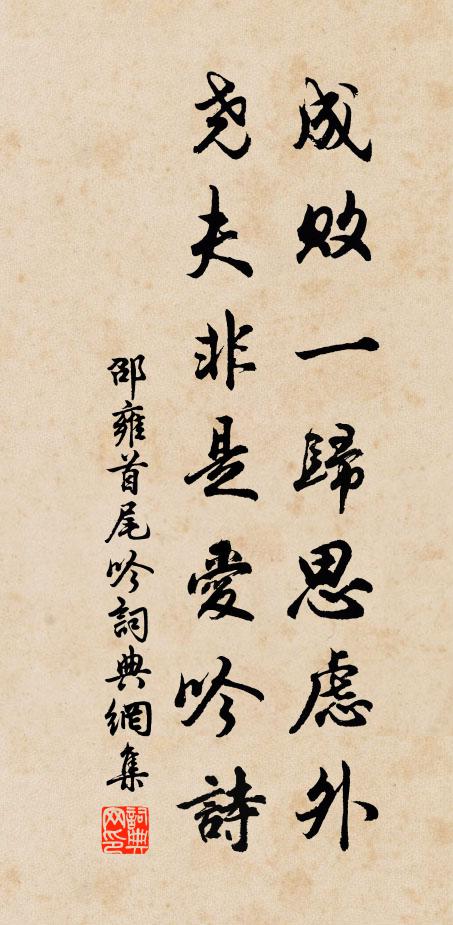 成敗一歸思慮外
尧夫非是愛吟詩
邵雍首尾吟詞典網集
詞典网印